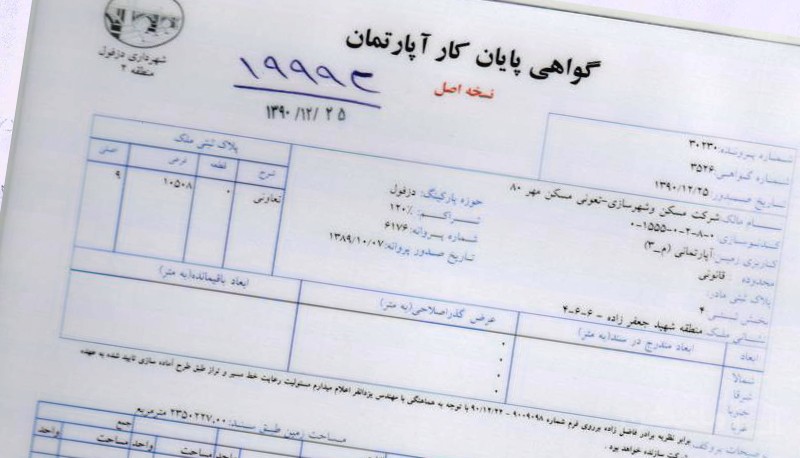 گواهی پایان کار آپارتمان
نسخه اصل
شهرداری دزفول
منطقه ۲
۱۹۹۹۳
۱۳۹۰/۱۲/۲۵
شماره پرونده: ۳۰۲۳۰
شماره گواهی: ۳۵۲۶
تاریخ صدور: ۱۳۹۰/۱۲/۲۵
نام مالک: شرکت مسکن وشهرسازی-تعونی مسکن مهر ۸۰
کدنوسازی: ۰-۱۵۵۵-۰-۰-۲-۸-۰
کاربری زمین: آپارتمانی (م_۳)
محدوده : قانونی
پلاک ثبتی مادر:
بخش ثبتی: ۴
نشانی ملک: منطقه شهید جعفر زاده - ۶-۶-۴
حوزه پارکینگ: دزفول
تراکم: ۱۲۰٪
شماره پروانه: ۶۱۷۶
تاریخ صدور پروانه: ۱۳۸۹/۱۰/۰۷
پلاک ثبتی ملک
شرح قطعه فرعی اصلی
تعاونی ۰ ۱۰۵۰۸ ۹
ابعاد ابعاد مندرج در سند(به متر) عرض گذراصلاحی(به متر) ابعاد باقیمانده(به متر)
شمالا ۰
شرقا ۰
جنوبا ۰
غربا ۰
برابر نظریه برادر فاضل زاده برروی فرم شماره ۹۰۰۹۰۹۸ - ۹۰/۱۲/۲۲ با توجه به هماهنگی با مهندس یزدانفر اعلام میدارم مسئولیت رعایت خط مسیر و تراز طبق طرح آماده سازی تایید شده به عهده
شرکت سازنده خواهد بود .
مساحت زمین طبق سند: ۲۳۵۰۲۲۷,۰۰ مترمربع
جمع
مساحت واحد مساحت واحد مساحت واحد